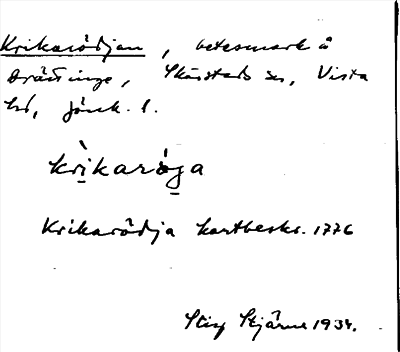 Krikarödjan, betesmark å
Drättinge, Skärstads sn, Vista
hd, Jönk. l.
krìkaröga
Krikarödja kartbeskr. 1776
Stig Stjärne 1934.